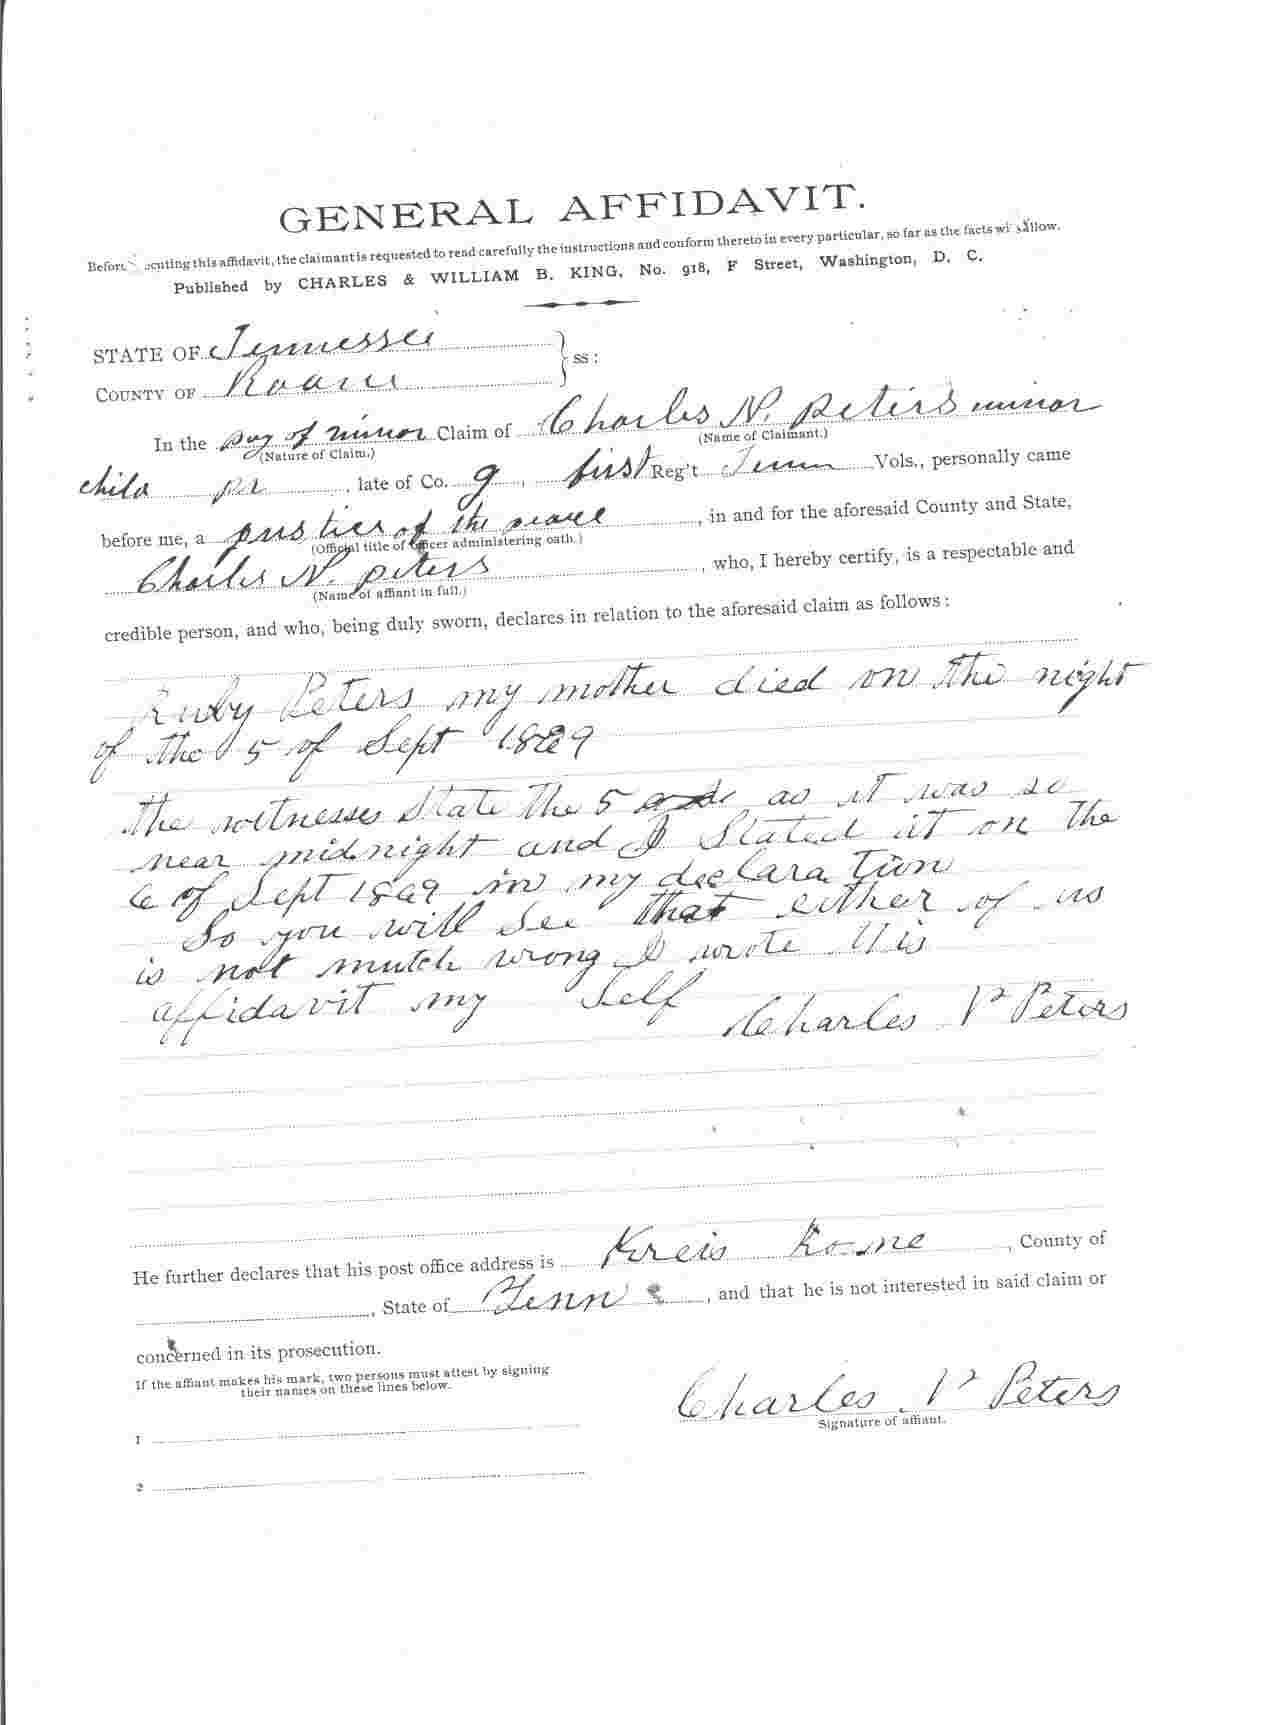 GENERAL AFFIDAVIT.
Before executing this affidavit, the claimant is requested to read carefully the instructions and conform thereto in every particular, so far as the facts will allow.
Published by CHARLES & WILLIAM B. KING, No. 918, F Street, Washington, D. C.
STATE OF Tennessee
COUNTY OF Roane } ss:
In the of minor Claim of Charles N. Peters minor
(Nature of Claim.) (Name of Claimant.)
child late of Co. g, first Reg't Tenn Vols., personally came
before me, a justice of the peace, in and for the aforesaid County and State,
(Official title of officer administering oath.)
Charles N. Peters, who, I hereby certify, is a respectable and
(Name of affiant in full.)
credible person, and who, being duly sworn, declares in relation to the aforesaid claim as follows:
Ruby Peters my mother died on the night
of the 5 of Sept 1869
the witnesses State the 5 as it was so
near midnight and I Stated it on the
6 of Sept 1869 in my declaration
So you will See that either of us
is not mutch wrong I wrote this
affidavit my Self
Charles N Peters
He further declares that his post office address is Kreis Rome, County of
, State of Tenn, and that he is not interested in said claim or
concerned in its prosecution.
If the affiant makes his mark, two persons must attest by signing
their names on these lines below.
Charles N Peters
Signature of affiant.
1
2